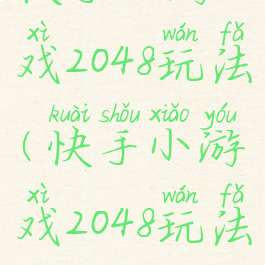 xì wán fǎ
戏2048玩法
kuài shǒu xiǎo yóu
(快手小游
xì wán fǎ
戏2048玩法